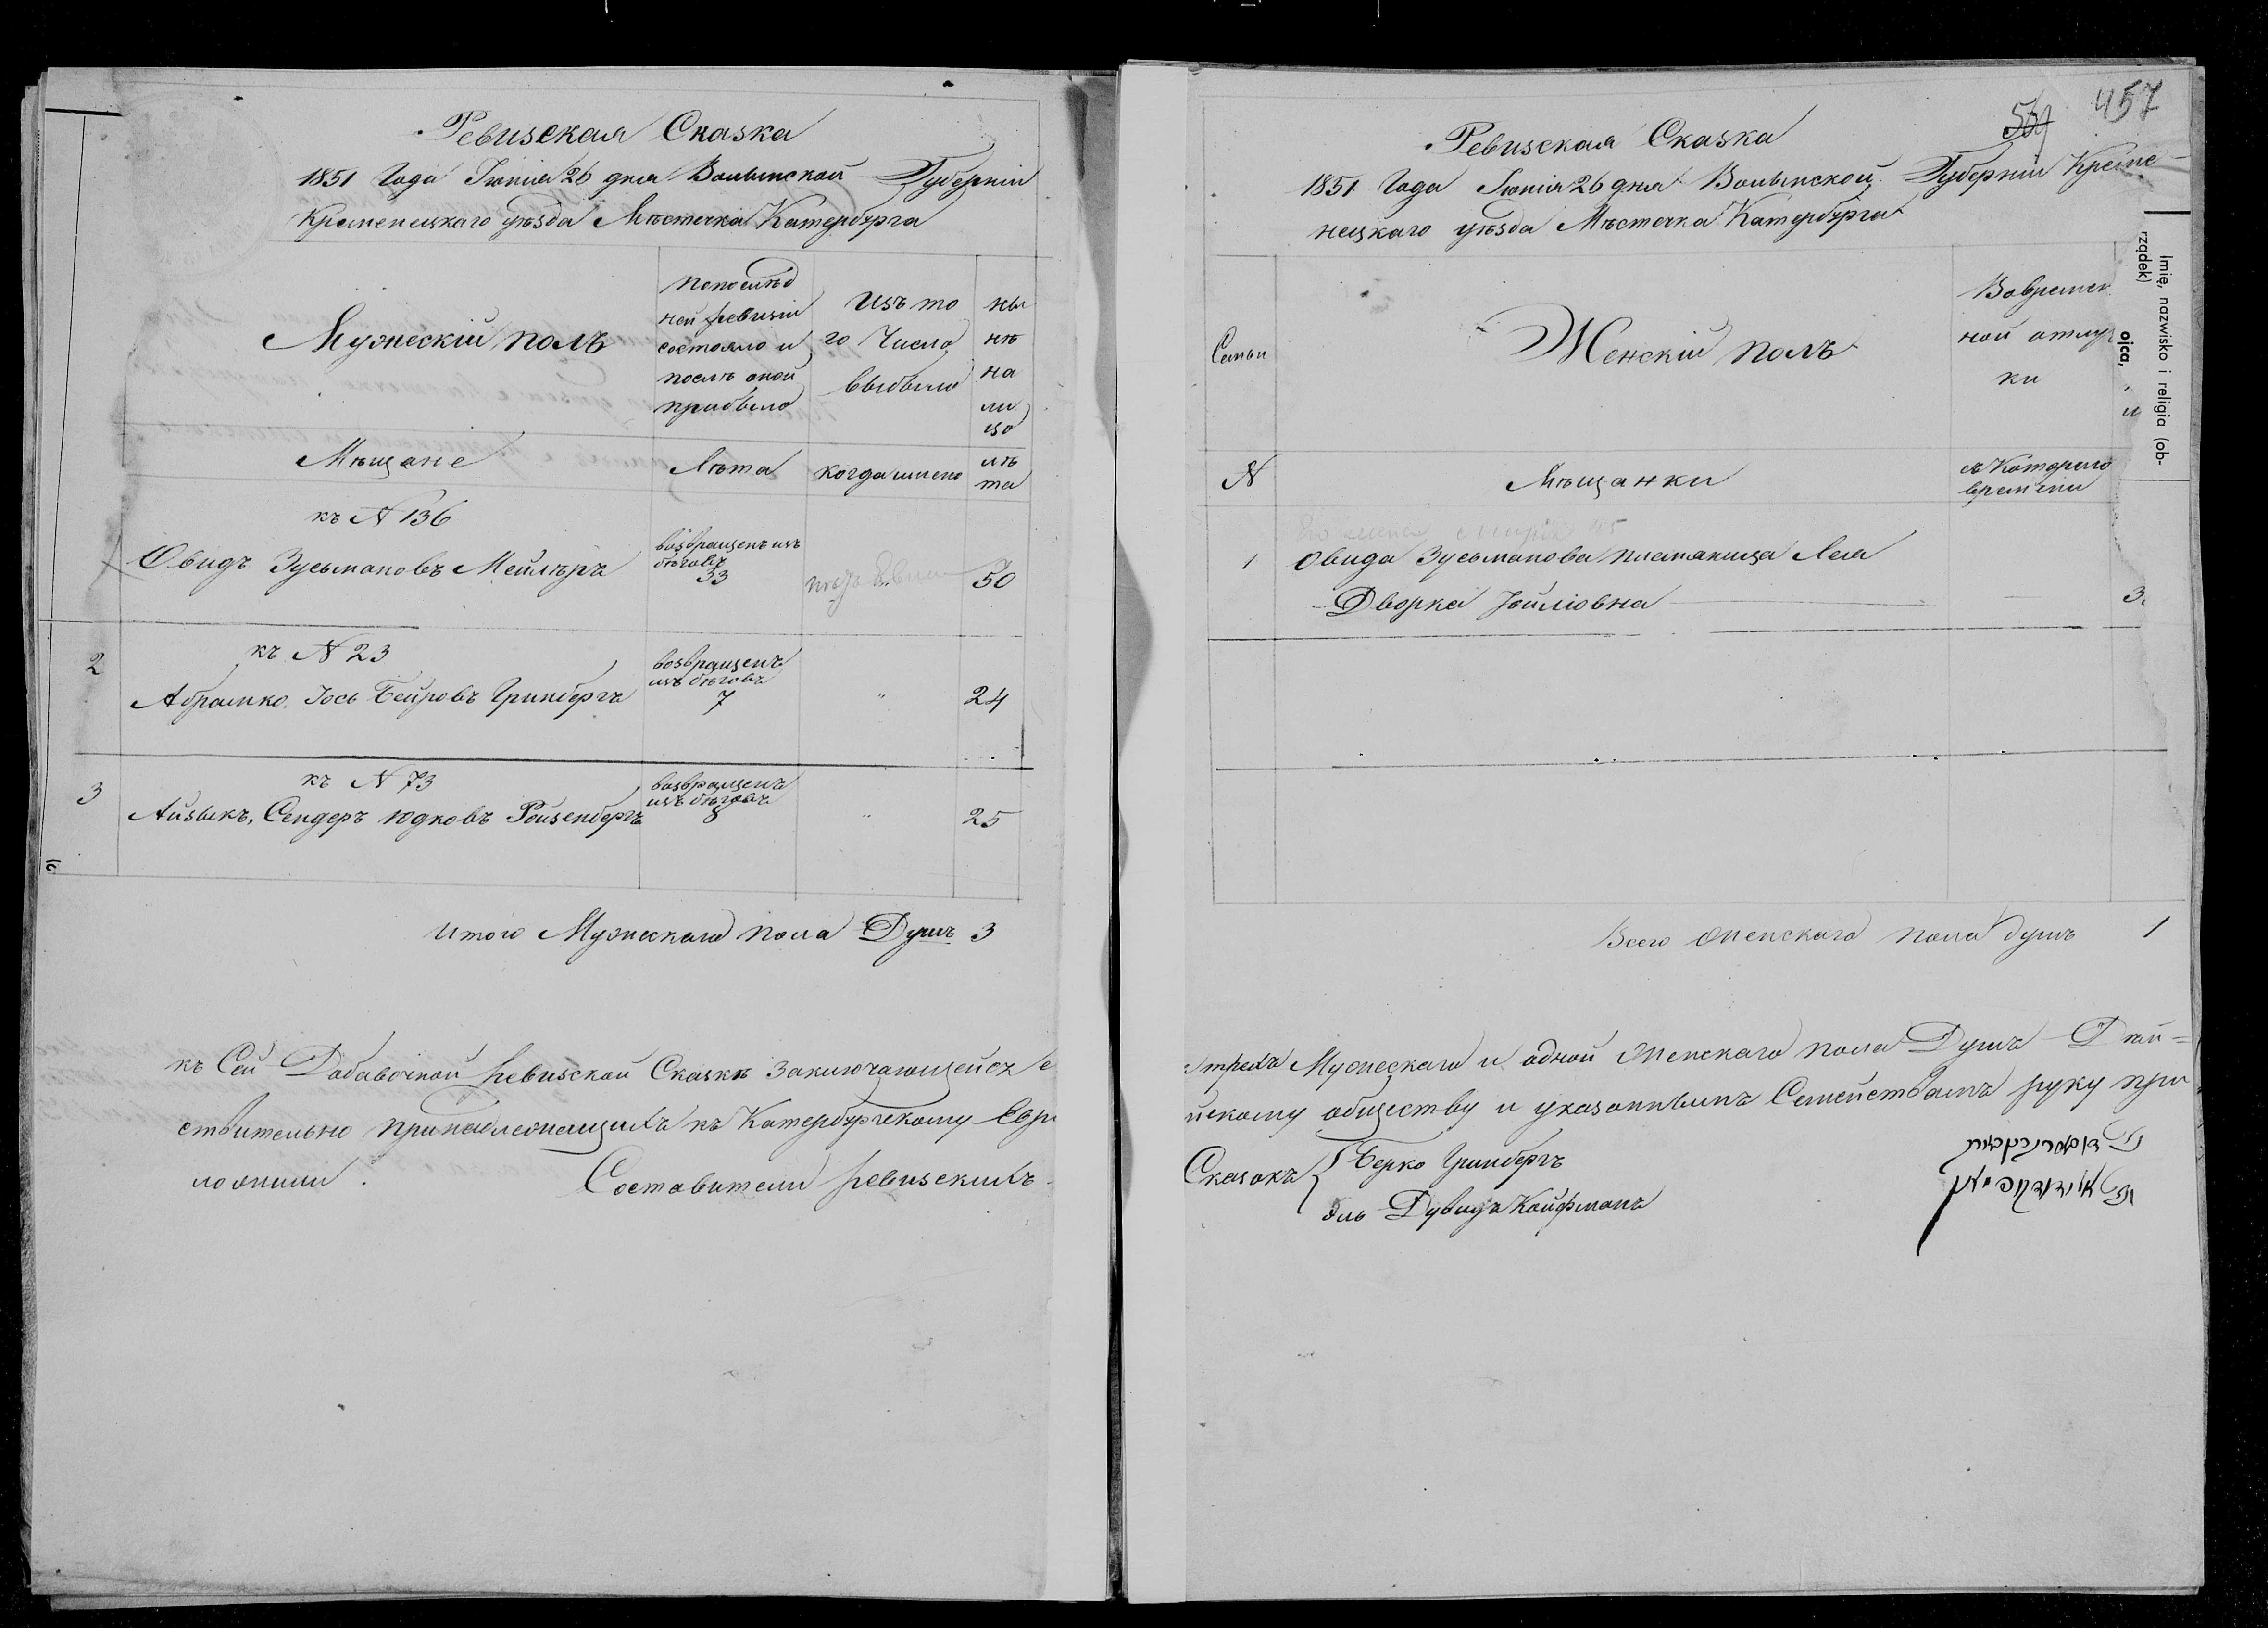 Ревизская Сказка
1851 Года Іюнія 26 дня Волынской Губерніи
Кременецкаго уѣзда Мѣстечка Катербурга
Мужескій полъ
попослѣд
ней ревизіи
состояло и
послѣ оной
прибыло
Изъ то
го Числа
выбыло
ны
нѣ
на
ли
цо
Мѣщане
Лѣта
когда имено
лѣ
та
къ N 136
1
Овидъ Зусьмановъ Мейлѣръ
возвращенъ изъ
бѣговъ
33
50
2
къ N 23
Абрамко Іось Беировъ Гринбергъ
возвращенъ
изъ бѣговъ
7
"
24
3
къ N 73
Айзыкъ, Сендеръ Юдковъ Ройзенбергъ
возвращенъ
изъ бѣговъ
8
"
25
итого Мужескаго пола Душъ 3
къ Сей Добавочной ревизской Сказкѣ заключающейся е
ствительно принадлежащихъ къ Катербургскому Евре
ложили.
Составители ревизскихъ
457
Ревизская Сказка
1851 Года Іюнія 26 дня Волынской Губерніи Креме
нецкаго уѣзда Мѣстечка Катербурга
Семьи
Женскій полъ
Вовремен
ной отлуч
ки
Imię, nazwisko i religia (ob-
rządek)
ojca,
N
Мѣщанки
съ Котораго
времени
Его жена 45
1
Овида Зусьманова племяница Леа
Дворка Іойліовна
3
Всего женскаго пола душъ 1
трехъ Мужескаго и одной женскаго пола Душъ Дѣй=
йскому обществу и указаннымъ Семействамъ руку при
Сказокъ
Берко Гринбергъ
Эль Дувидъ Кауфманъ